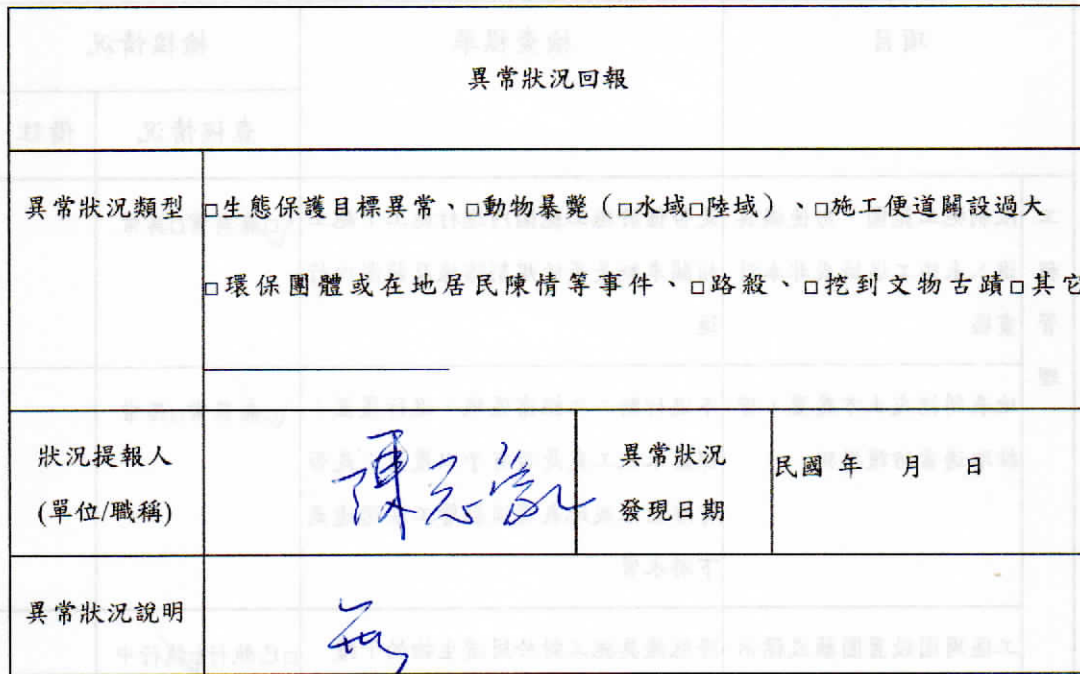 異常狀況回報
異常狀況類型
□生態保護目標異常、□動物暴斃（□水域□陸域）、□施工便道闢設過大
□環保團體或在地居民陳情等事件、□路殺、□挖到文物古蹟□其它
狀況提報人
(單位/職稱)
陳志豪
異常狀況
發現日期
民國 年 月 日
異常狀況說明
無